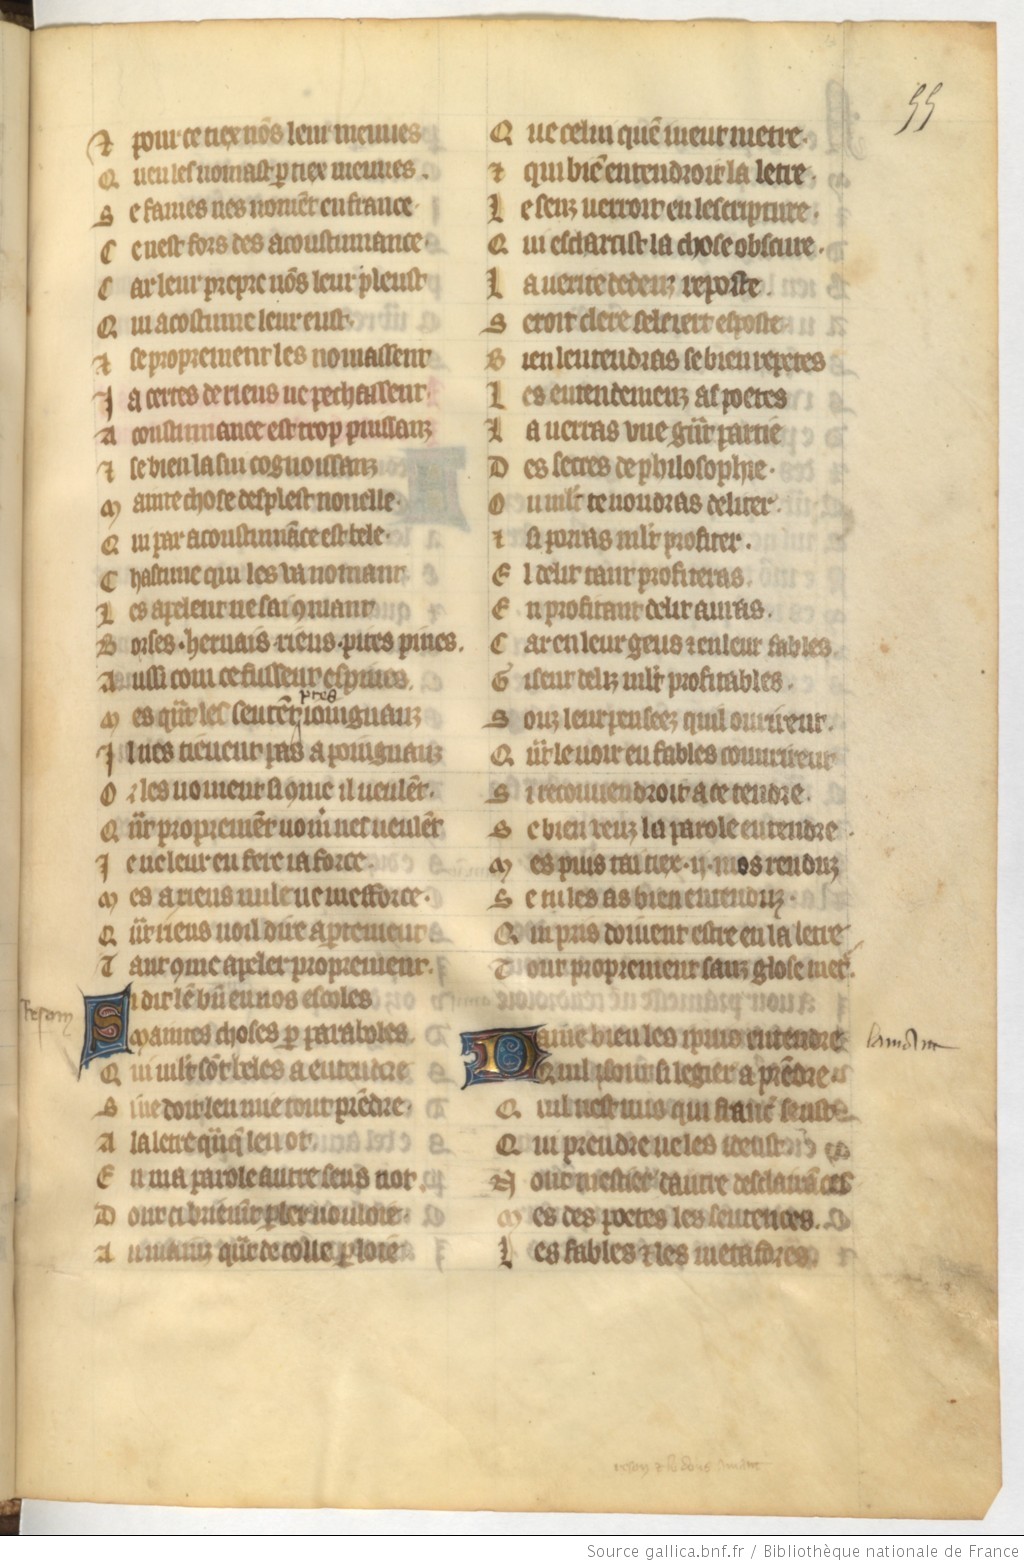 55
⁊ pour ce tiex nōs leur meuues
Q ueu les nomast p tiex meuures .
S e fames nes nomēt en france
C e nest fors des acoustumance
C ar leur propre nōs leur pleust
Q ui acostume leur eust
⁊ se proprement les nomassent
J a certes de riens ne pechassent
A coustumance est trop puissanz
⁊ se bien la sui cognoissanz
M ainte chose desplest nouelle
Q ui par acoustumāce est bele
C hascune qui les va nomant
L es apeleur ne sai 9mant
B orses . hernais . riens . pites pines .
A ussi com ce fussent espines
M es qūt les sentēt ioingnanz
pres
J l nes tienent pas a poingnanz
O r les noment si 9me il ueulēt
Q ūt proprement nomer net ueulēt
J e ne leur en fere ia force
M es a riens nule ne mefforce
Q ūt riens uoil dire apertement
T ant 9me apeler proprement .
S i dit lē bn̄ en nos escoles
Maintes choses p paraboles
Q ui mlt sōt beles a entendre
S i ne doit len mie tout prēdre
A la lettre q̄nq̄ len ot
E n ma parole autre sens not
D ont si briemēt pler uouloie
A
Raison
Q ue celui quē ueut metre
⁊ qui biē entendroit la letre
L e senz uerroit en lescripture
Q ui esclarcist la chose obscure
L a uerite dedenz reposte
S eroit clere sele iert esposte
B ien lentendras se bien repetes
L es entendemenz as poetes
L a uerras vne gn̄t partie
D es secres de philosophie
O u mlt te uoudras deliter
⁊ si porras mlt profiter .
E l delit tant profiteras
E n profitant delit auras .
C ar en leur geus ⁊ en leur fables
G isent deliz mlt profitables .
S ouz leur pensees quil ouurirent
Q ūt le uoir en fables couurirent
S i te couuendroit a ce tendre
S e bien veuz la parole entendre
M es puis tai tiex .ij. mos renduz
S e tu les as bien entenduz
Q ui pris doiuent estre en la letre
T out proprement sanz glose metre
lamant
Dame bien les i puis entendre
Quil i sont si legier a prēdre
Q uil nest nus qui
Q ui prendre ne les
N ont mestier dautre
M es des poetes les sentences
L es fables ⁊ les metafores
Source gallica.bnf.fr / Bibliothèque nationale de France